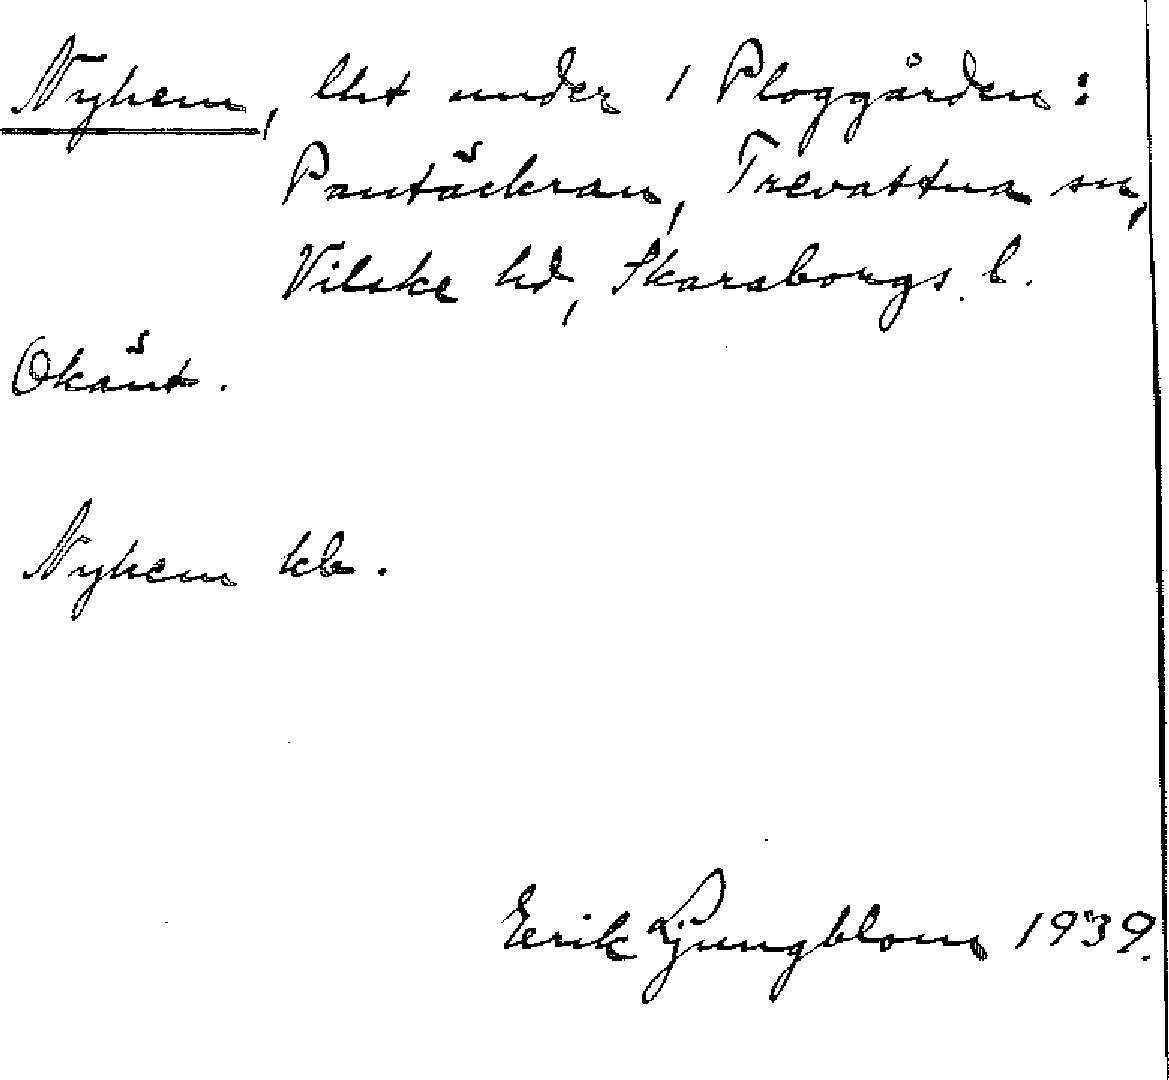 Nyhem, lht under 1 Ploggården:
Pantäckran, Trevattna sn,
Vilske hd, Skaraborgs l.
Okänt.
Nyhem kb.
Erik Ljungblom 1939.